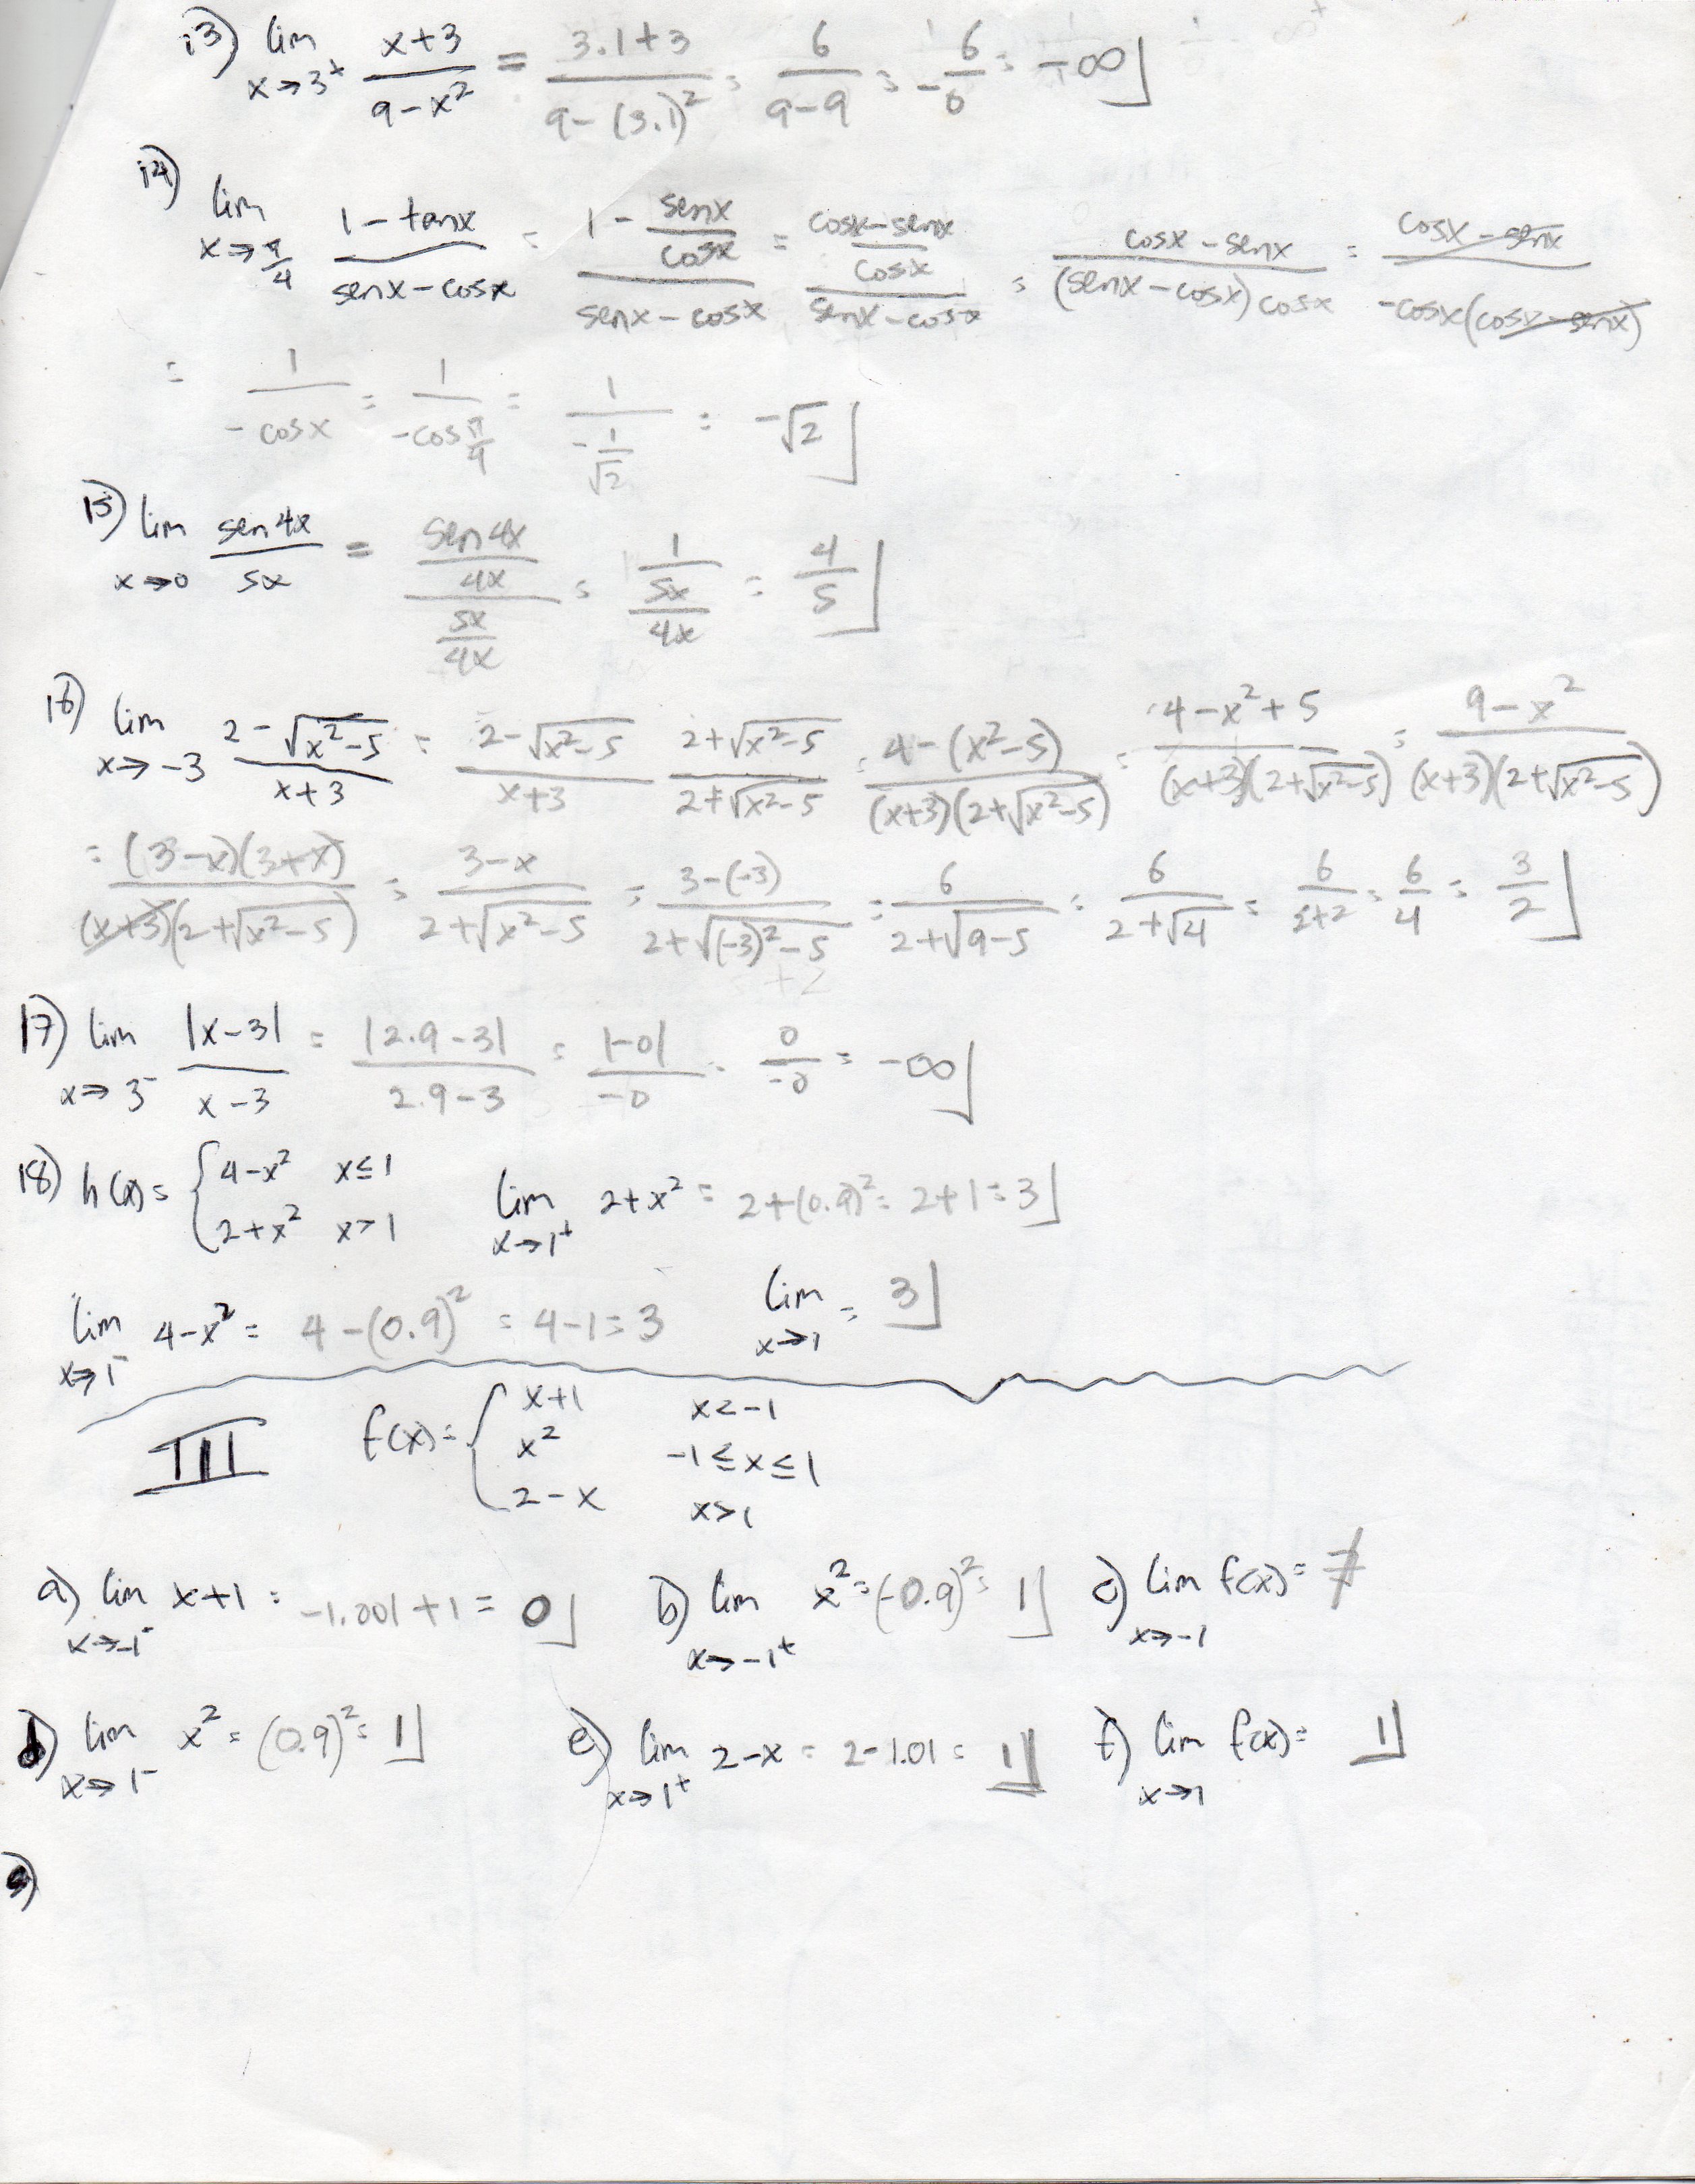 13) lim x→3⁺ (x+3)/(9-x²) = (3.1+3)/(9-(3.1)²) = 6/(9-9) = -6/0 = -∞
14) lim x→π/4 (1-tanx)/(senx-cosx) = (1-senx/cosx)/(senx-cosx) = ((cosx-senx)/cosx)/(senx-cosx) = (cosx-senx)/((senx-cosx)cosx) = (cosx-senx)/(-cosx(cosx-senx))
= 1/(-cosx) = 1/(-cos π/4) = 1/(-1/√2) = -√2
15) lim x→0 sen4x/5x = (sen4x/4x)/(5x/4x) = 1/(5x/4x) = 4/5
16) lim x→-3 (2-√(x²-5))/(x+3) = (2-√(x²-5))/(x+3) (2+√(x²-5))/(2+√(x²-5)) = (4-(x²-5))/((x+3)(2+√(x²-5))) = (4-x²+5)/((x+3)(2+√(x²-5))) = (9-x²)/((x+3)(2+√(x²-5)))
= ((3-x)(3+x))/((x+3)(2+√(x²-5))) = (3-x)/(2+√(x²-5)) = (3-(-3))/(2+√((-3)²-5)) = 6/(2+√(9-5)) = 6/(2+√4) = 6/(2+2) = 6/4 = 3/2
17) lim x→3⁻ |x-3|/(x-3) = |2.9-3|/(2.9-3) = |-0|/-0 = 0/-0 = -∞
18) h(x) = { 4-x² x≤1
2+x² x>1 lim x→1⁺ 2+x² = 2+(0.9)² = 2+1 = 3
lim x→1⁻ 4-x² = 4-(0.9)² = 4-1 = 3 lim x→1 = 3
III f(x) = { x+1 x<-1
x² -1≤x≤1
2-x x>1
a) lim x→-1⁻ x+1 = -1.001+1 = 0 b) lim x→-1⁺ x² = (-0.9)² = 1 c) lim x→-1 f(x) = ∄
d) lim x→1⁻ x² = (0.9)² = 1 e) lim x→1⁺ 2-x = 2-1.01 = 1 f) lim x→1 f(x) = 1